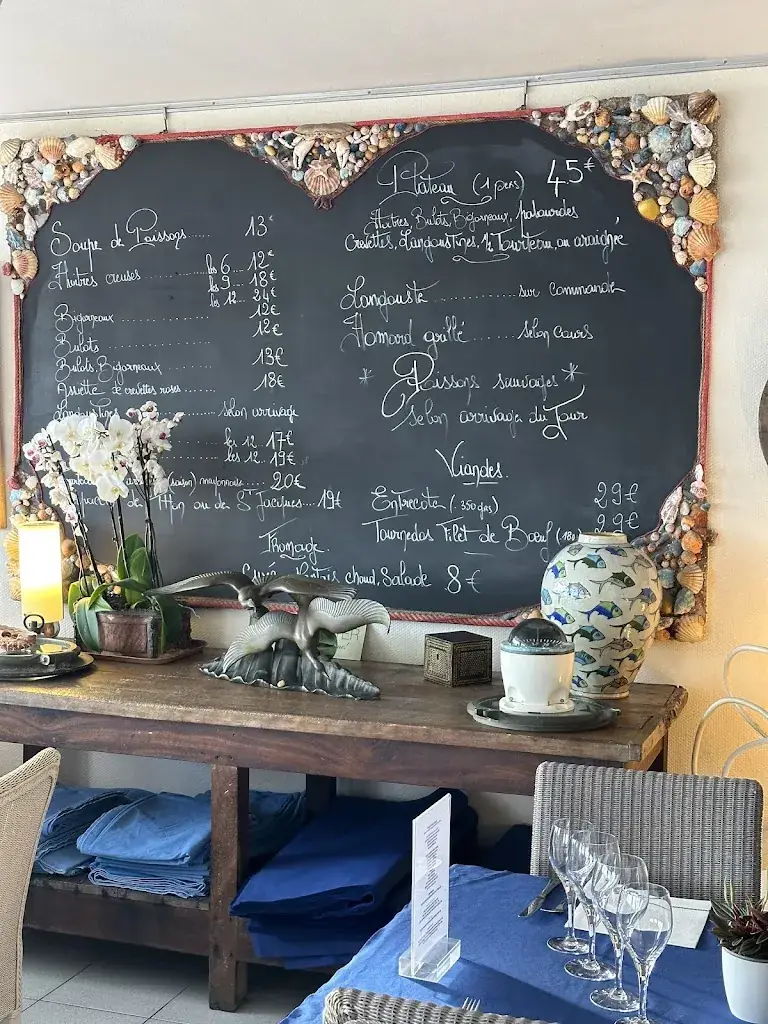 Soupe de Poissons..... 13€
Huitres creuses ..... les 6 ... 12€
les 9 ... 18€
les 12 ... 24€
Bigorneaux ............ 12€
Bulots ............ 12€
Bulots, Bigorneaux ...... 13€
Assiette de crevettes roses ...... 18€
Langoustines ........ selon arrivage
les 12 17€
les 12 .. 19€
(saison) mayonnaise ..... 20€
de Thon ou de St Jacques.... 19€
Fromage
chaud, Salade 8€
Plateau (1 pers) 45€
Huitres, Bulots, Bigorneaux, palourdes
Crevettes, Langoustines, ½ Tourteau, ou araignée
Langouste ............ sur commande
Homard grillé ........ selon cours
* Poissons sauvages *
selon arrivage du Jour
Viandes.
Entrecote (. 350 grs) 29€
Tournedos Filet de Bœuf (180 29€